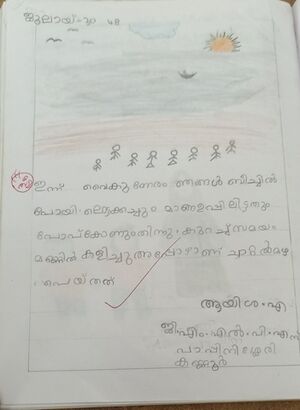 ജൂലായ്-20 ചൊ
ഇന്ന് വൈകുന്നേരം ഞങ്ങൾ ബീച്ചിൽ
പോയി. ഐസ്ക്രീമും മാങ്ങഉപ്പിലിട്ടതും
പോപ്കോണുംതിന്നു. കുറച്ച്സമയം
മണ്ണിൽ കളിച്ചുഅപ്പോഴാണ് ചാറ്റൽമഴ
പെയ്തത്
ആയിശ.എ
ജി.എം.എൽ.പി.എസ്
പാപ്പിനിശ്ശേരി
കണ്ണൂർ